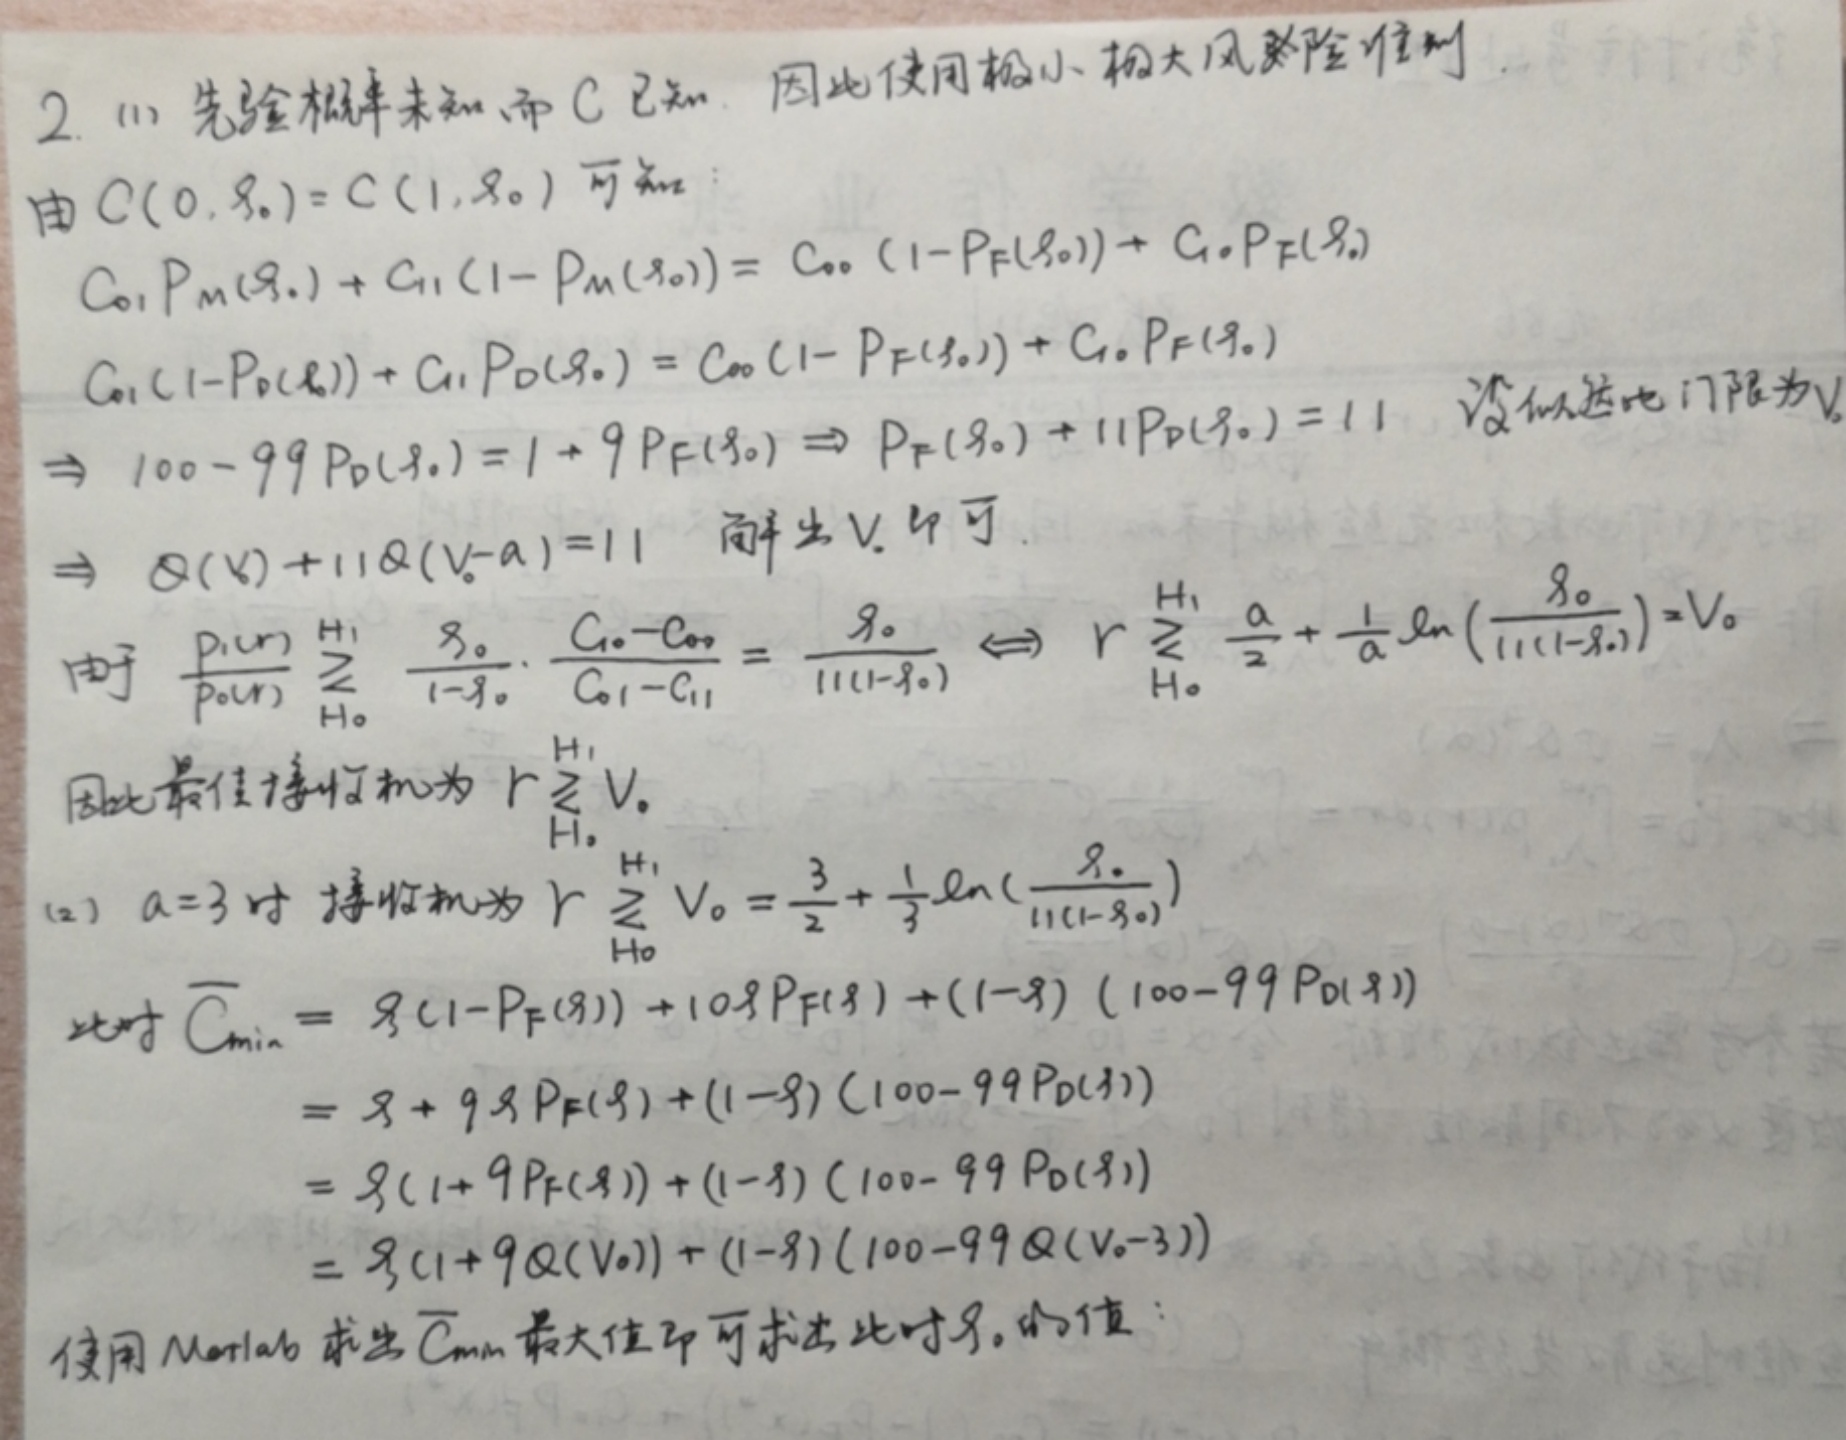 2. (1) 先验概率未知,而 C 已知. 因此使用极小极大风险准则.
由 C(0, q₀) = C(1, q₀) 可知:
C₀₁P_M(q₀) + C₁₁(1-P_M(q₀)) = C₀₀(1-P_F(q₀)) + C₁₀P_F(q₀)
C₀₁(1-P_D(q₀)) + C₁₁P_D(q₀) = C₀₀(1-P_F(q₀)) + C₁₀P_F(q₀)
⇒ 100-99P_D(q₀) = 1+9P_F(q₀) ⇒ P_F(q₀) + 11P_D(q₀) = 11 设似然比门限为V₀
⇒ Q(V₀) + 11Q(V₀-a) = 11 解出V₀即可.
由于 p₁(r)/p₀(r) ≷ (H₁/H₀) q₀/(1-q₀) · (C₁₀-C₀₀)/(C₀₁-C₁₁) = q₀/(11(1-q₀)) ⇔ r ≷ (H₁/H₀) a/2 + 1/a ln(q₀/(11(1-q₀))) = V₀
因此最佳接收机为 r ≷ (H₁/H₀) V₀
(2) a=3时 接收机为 r ≷ (H₁/H₀) V₀ = 3/2 + 1/3 ln(q₀/(11(1-q₀)))
此时 C̄min = q(1-P_F(q)) + 10qP_F(q) + (1-q)(100-99P_D(q))
= q + 9qP_F(q) + (1-q)(100-99P_D(q))
= q(1+9P_F(q)) + (1-q)(100-99P_D(q))
= q(1+9Q(V₀)) + (1-q)(100-99Q(V₀-3))
使用Matlab求出C̄min最大值即可求出此时q₀的值: